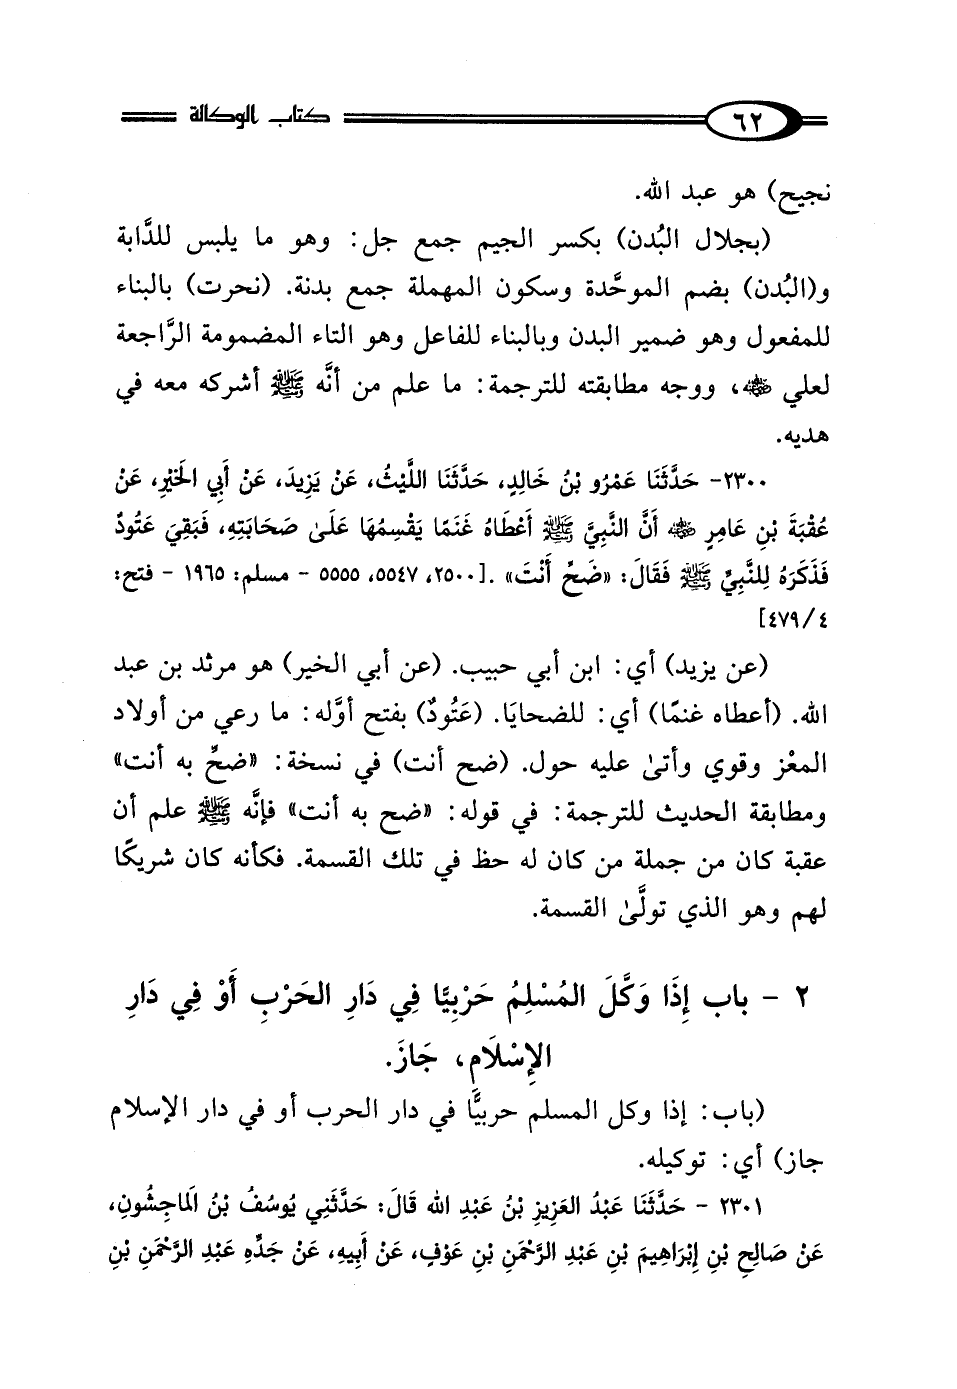 ٦٢ كتاب الوكالة
نجيح) هو عبد الله.
(بجلال البُدن) بكسر الجيم جمع جل: وهو ما يلبس للدَّابة
و(البُدن) بضم الموحَّدة وسكون المهملة جمع بدنة. (نحرت) بالبناء
للمفعول وهو ضمير البدن وبالبناء للفاعل وهو التاء المضمومة الرَّاجعة
لعلي ﵁، ووجه مطابقته للترجمة: ما علم من أنَّه ﷺ أشركه معه في
هديه.
٢٣٠٠- حَدَّثَنَا عَمْرُو بْنُ خَالِدٍ، حَدَّثَنَا اللَّيْثُ، عَنْ يَزِيدَ، عَنْ أَبِي الخَيْرِ، عَنْ
عُقْبَةَ بْنِ عَامِرٍ ﵁ أَنَّ النَّبِيَّ ﷺ أَعْطَاهُ غَنَمًا يَقْسِمُهَا عَلَىٰ صَحَابَتِهِ، فَبَقِيَ عَتُودٌ
فَذَكَرَهُ لِلنَّبِيِّ ﷺ فَقَالَ: «ضَحِّ أَنْتَ» .[٢٥٠٠، ٥٥٤٧، ٥٥٥٥ - مسلم: ١٩٦٥ - فتح:
٤/ ٤٧٩]
(عن يزيد) أي: ابن أبي حبيب. (عن أبي الخير) هو مرثد بن عبد
الله. (أعطاه غنمًا) أي: للضحايَا. (عَتُودٌ) بفتح أوَّله: ما رعي من أولاد
المعْز وقوي وأتىٰ عليه حول. (ضح أنت) في نسخة: «ضحِّ به أنت»
ومطابقة الحديث للترجمة: في قوله: «ضح به أنت» فإنَّه ﷺ علم أن
عقبة كان من جملة من كان له حظ في تلك القسمة. فكأنه كان شريكًا
لهم وهو الذي تولَّىٰ القسمة.
٢ - باب إِذَا وَكَّلَ المُسْلِمُ حَرْبِيًّا فِي دَارِ الحَرْبِ أَوْ فِي دَارِ
الإِسْلَامِ، جَازَ.
(باب: إذا وكل المسلم حربيًّا في دار الحرب أو في دار الإسلام
جاز) أي: توكيله.
٢٣٠١ - حَدَّثَنَا عَبْدُ العَزِيزِ بْنُ عَبْدِ الله قَالَ: حَدَّثَنِي يُوسُفُ بْنُ الَماجِشُونِ،
عَنْ صَالِحِ بْنِ إِبْرَاهِيمَ بْنِ عَبْدِ الرَّحْمَنِ بْنِ عَوْفٍ، عَنْ أَبِيهِ، عَنْ جَدِّهِ عَبْدِ الرَّحْمَنِ بْنِ